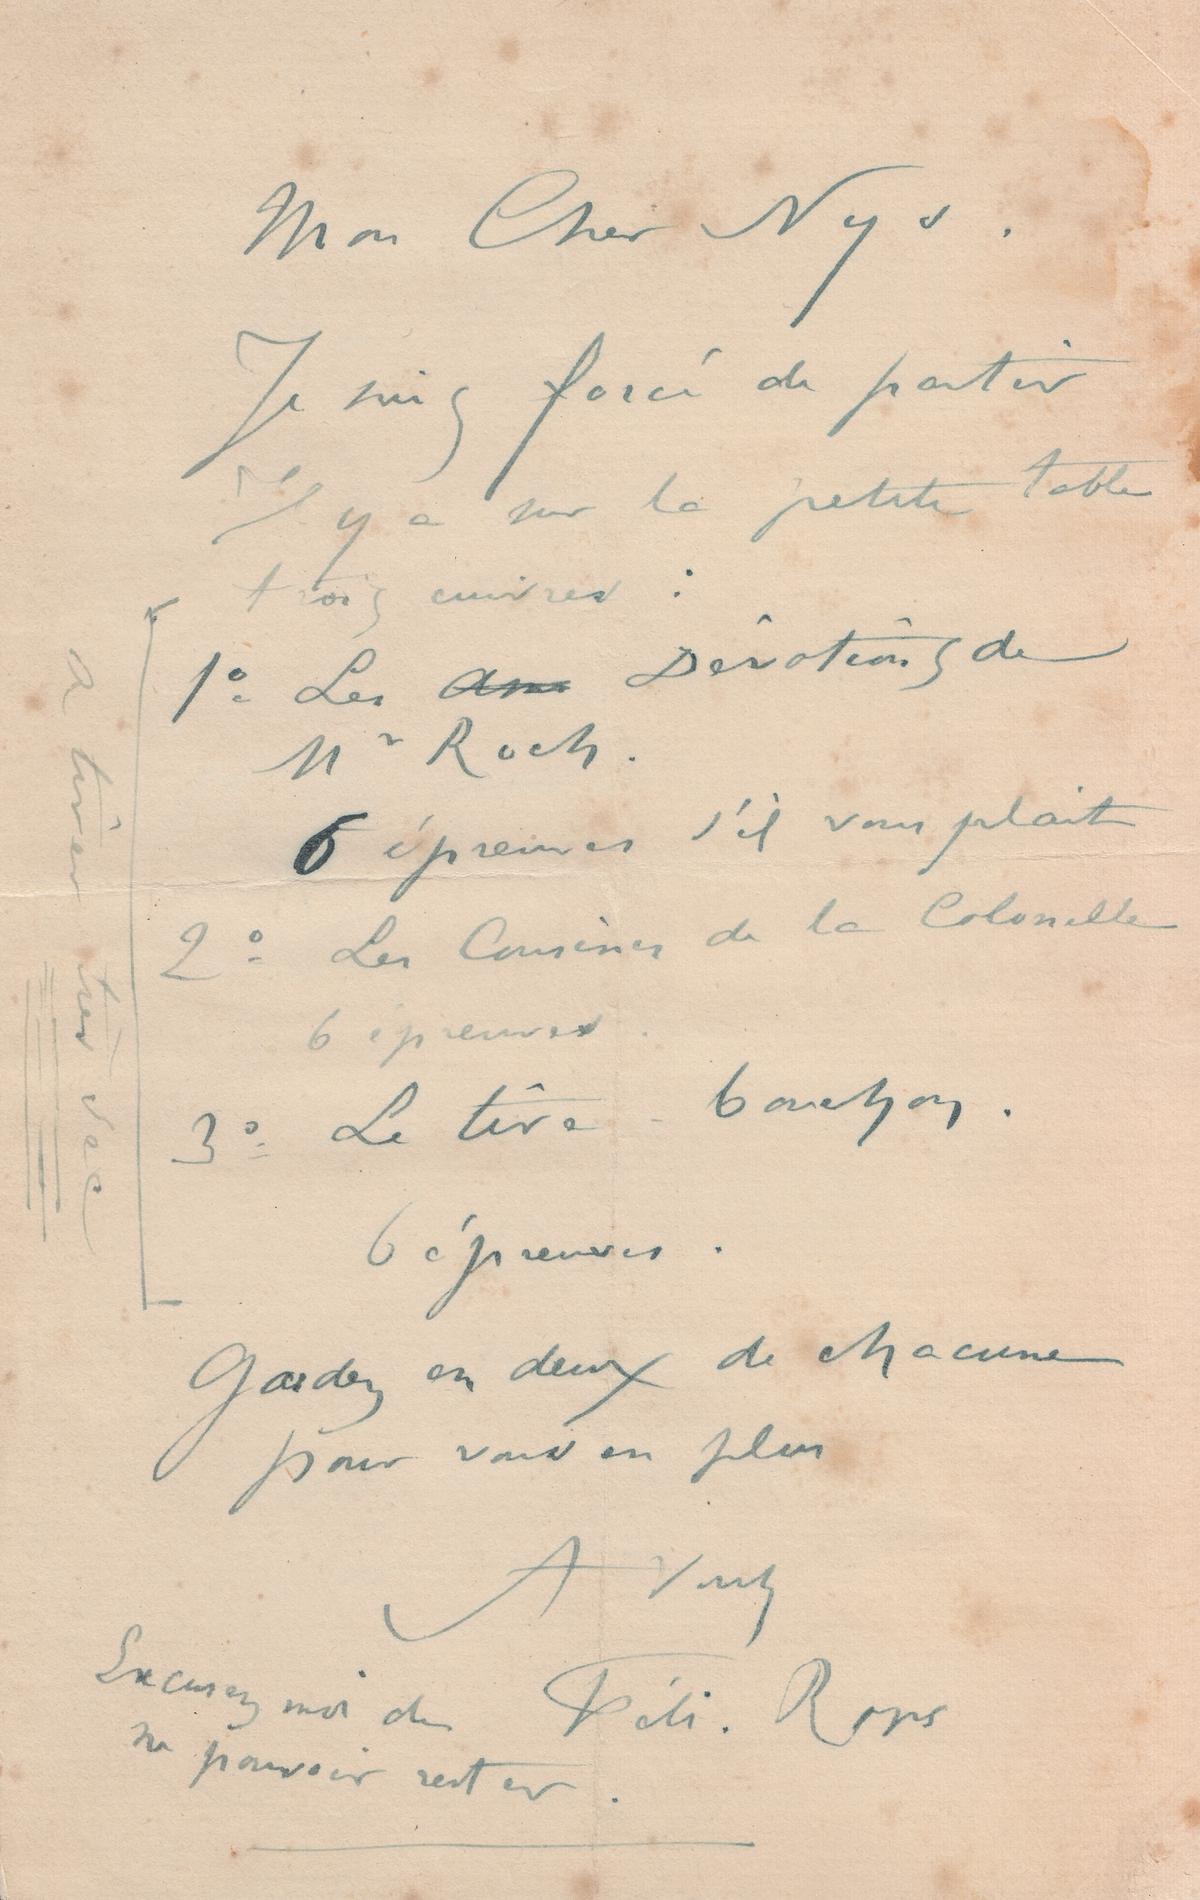 Mon Cher Nys.
Je suis forcé de partir
Il y a sur la petite table
trois cuivres :
1° Les Dévotions de
Mr Roch.
6 épreuves s'il vous plait
2° Les Cousines de la Colonelle
6 épreuves.
3° Le tire-bouchon.
6 épreuves.
a tirer très sec
Gardez en deux de chacune
pour vous en plus
A Vous
Féli. Rops
Excusez moi de
ne pouvoir rester.